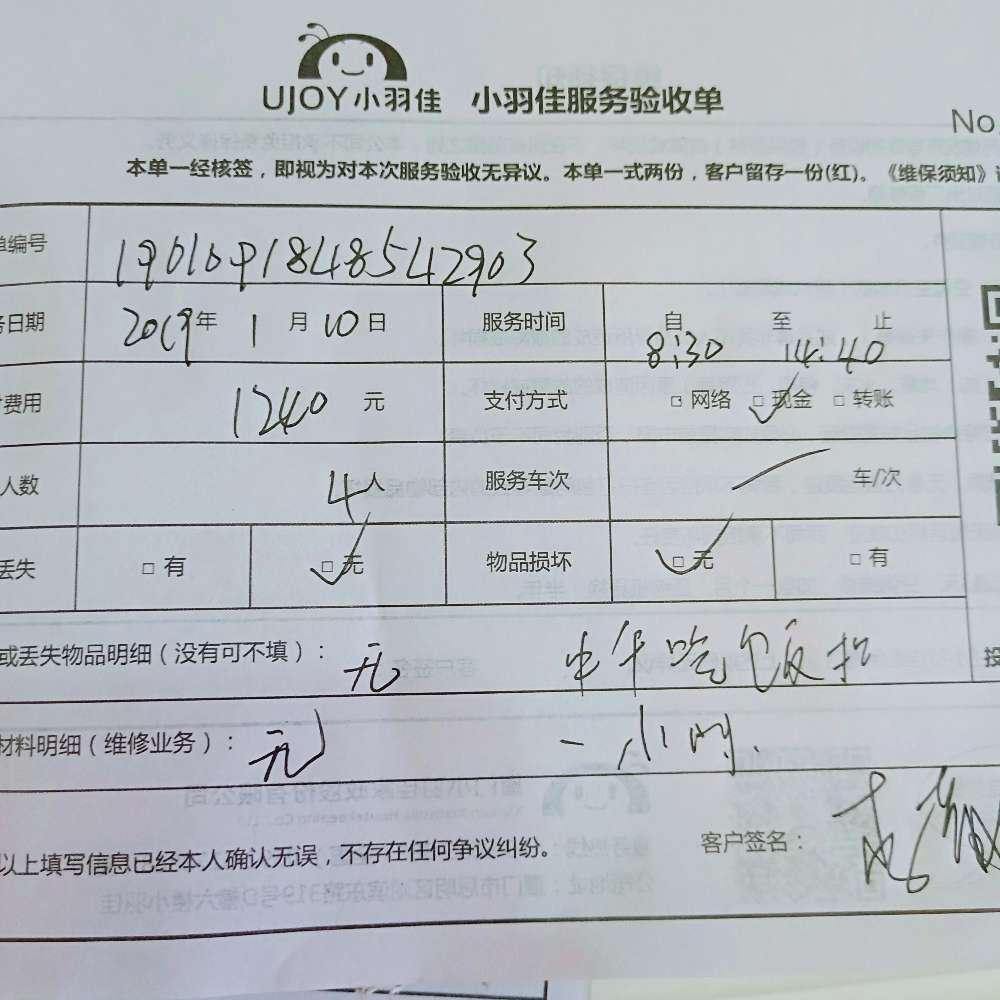 UJOY小羽佳 小羽佳服务验收单
No
本单一经核签，即视为对本次服务验收无异议。本单一式两份，客户留存一份(红)。《维保须知》
单编号 190109184854 2903
务日期 2019年 1 月 10 日 服务时间 自 8:30 至 14:40 止
费用 1240 元 支付方式 □ 网络 □ 现金 □ 转账
人数 4人 服务车次 车/次
丢失 □ 有 □ 无 物品损坏 □ 无 □ 有
或丢失物品明细（没有可不填）： 无 中午吃饭扣
材料明细（维修业务）： 无 一小时
以上填写信息已经本人确认无误，不存在任何争议纠纷。 客户签名：
投